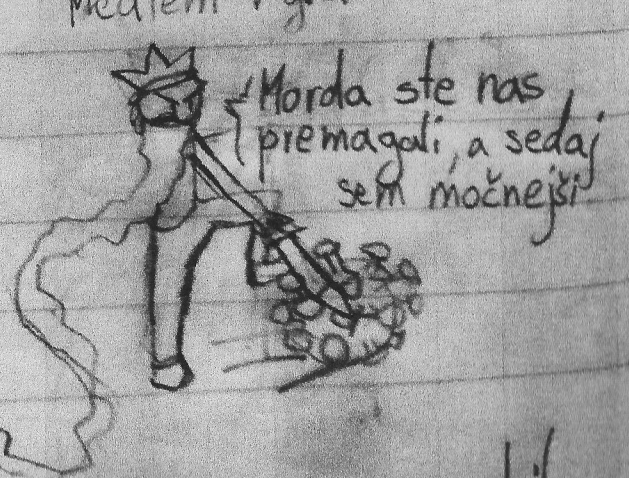 Morda ste nas
premagali, a sedaj
sem močnejši